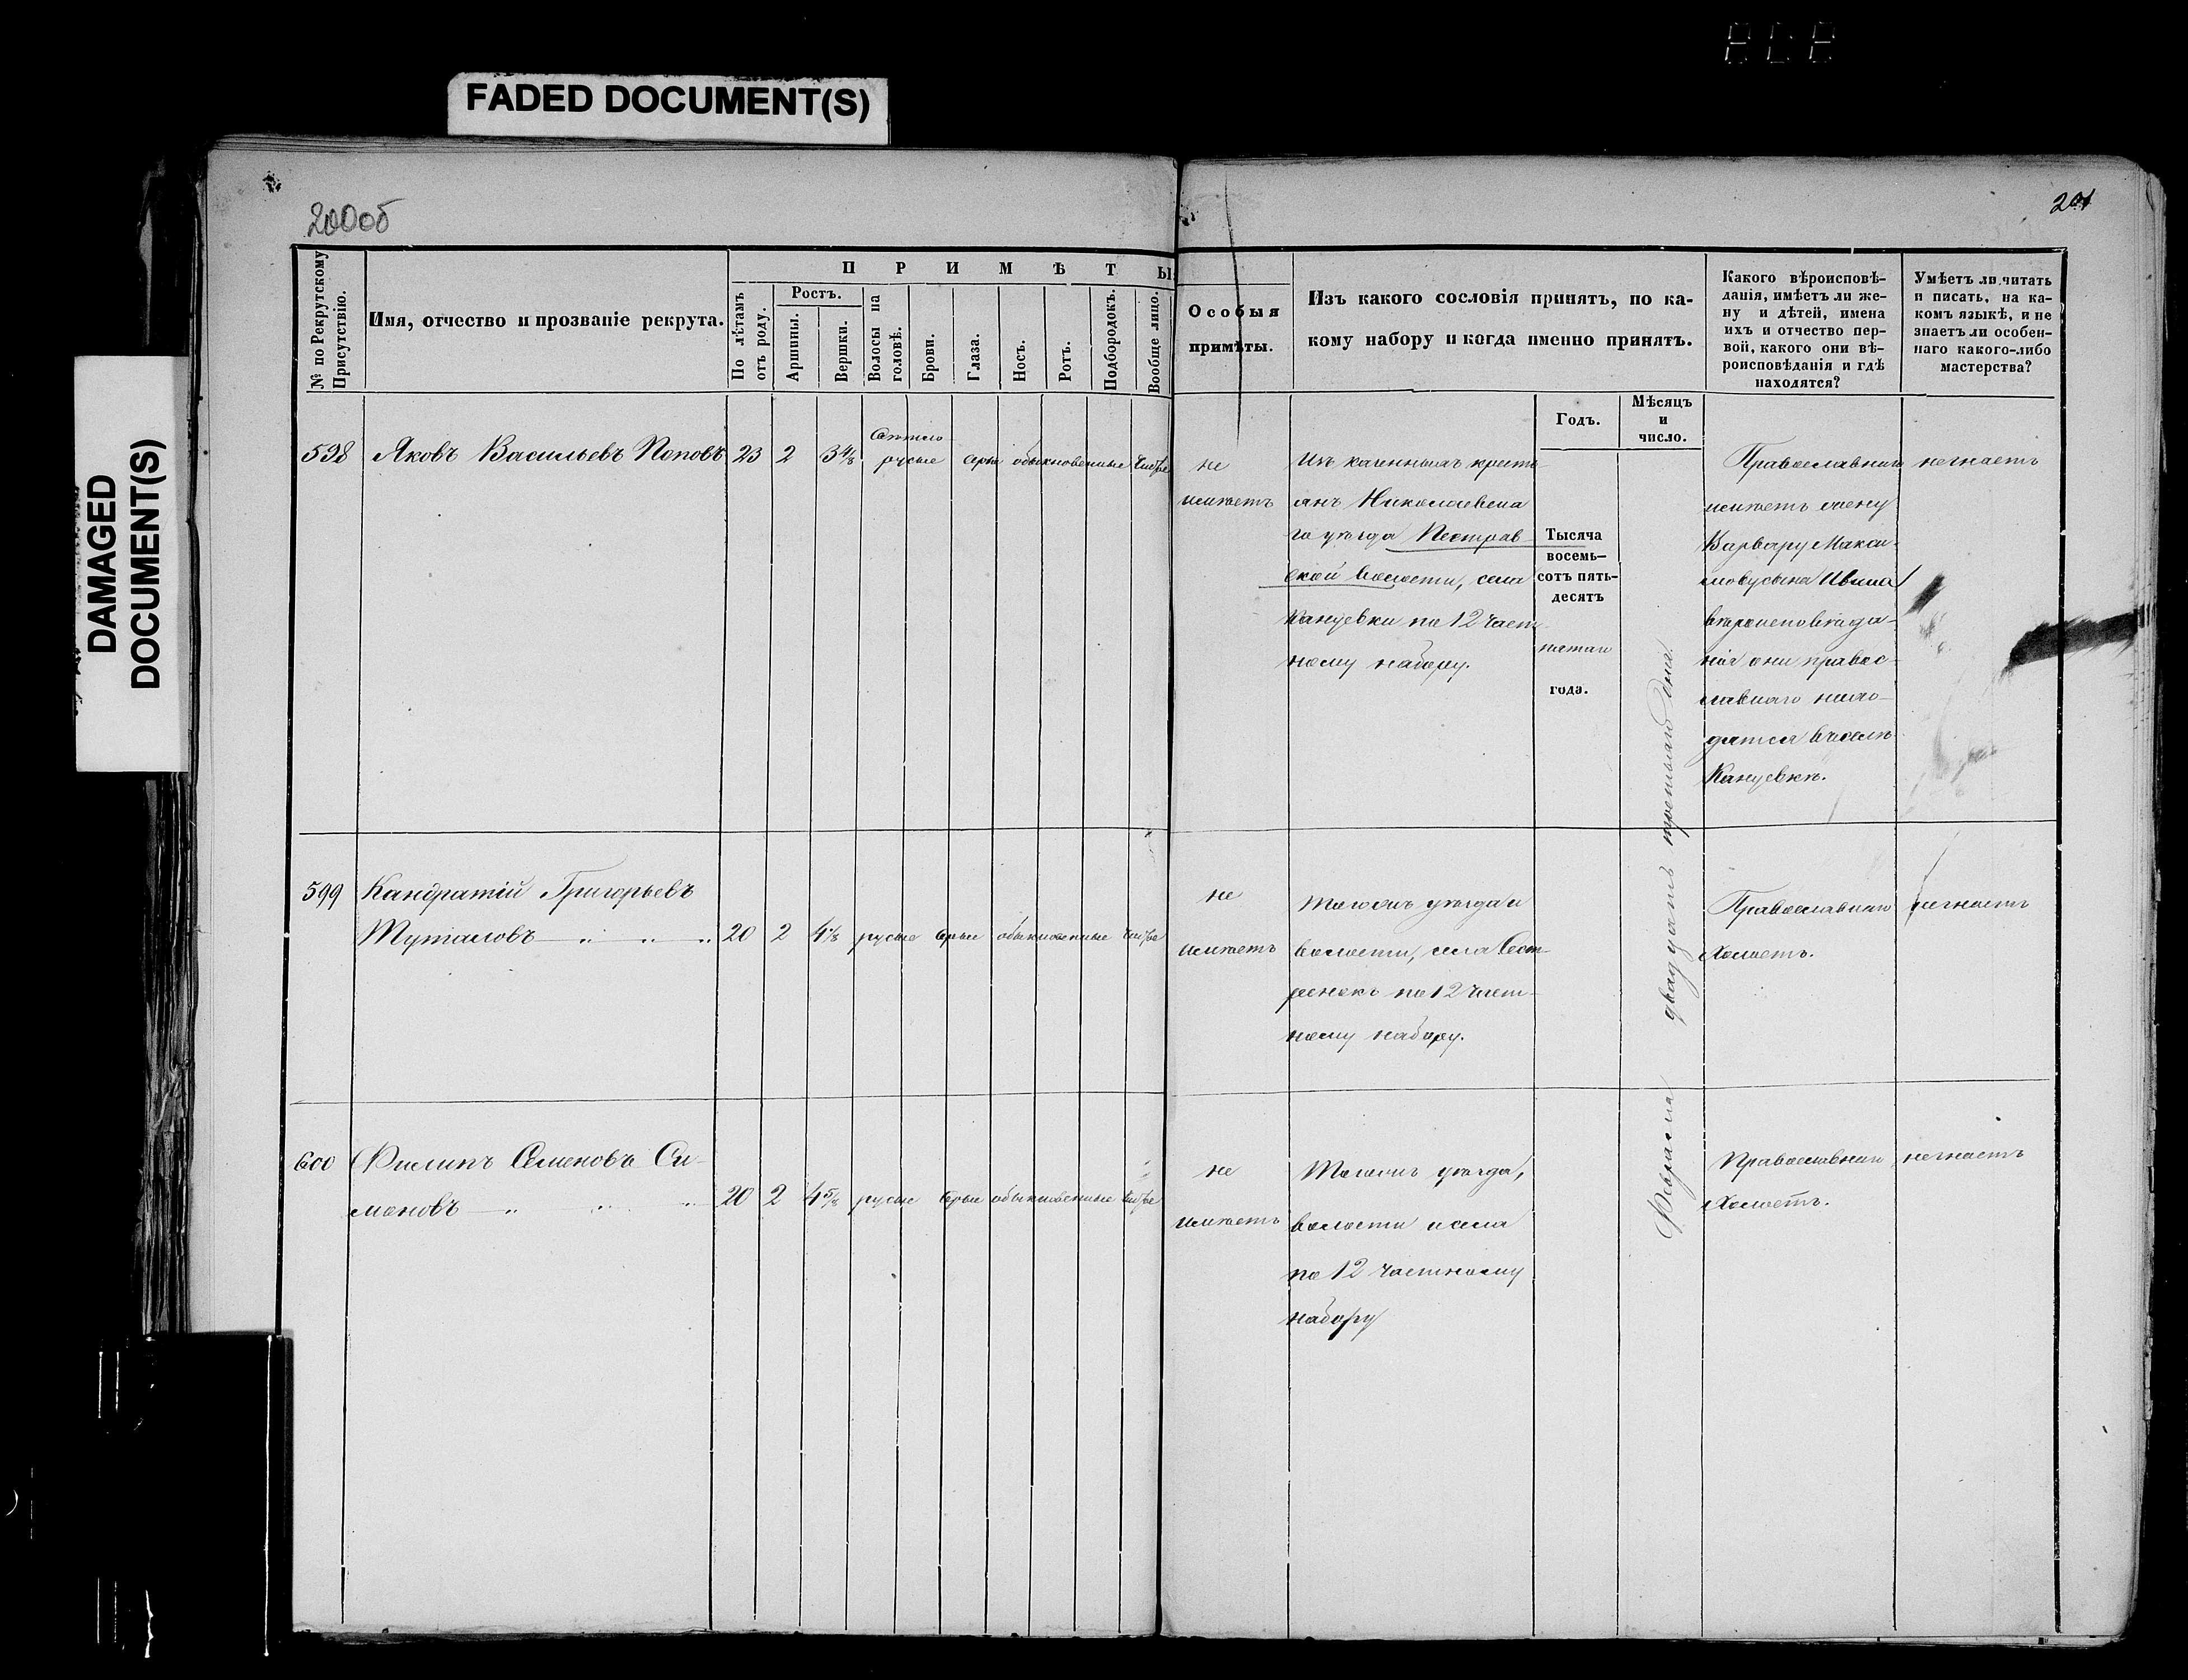 FADED DOCUMENT(S)
DAMAGED
DOCUMENT(S)
200об
201
№ по Рекрутскому
Присутствію.
Имя, отчество и прозваніе рекрута.
ПРИМѢТЫ.
По лѣтамъ
отъ роду.
Ростъ.
Аршины.
Вершки.
Волосы на
головѣ.
Брови.
Глаза.
Носъ.
Ротъ.
Подбородокъ.
Вообще лицо.
Особыя
примѣты.
Изъ какого сословія принятъ, по ка-
кому набору и когда именно принятъ.
Годъ.
Мѣсяцъ
и
число.
Какого вѣроисповѣ-
данія, имѣетъ ли же-
ну и дѣтей, имена
ихъ и отчество пер-
вой, какого они вѣ-
роисповѣданія и гдѣ
находятся?
Умѣетъ ли читать
и писать, на ка-
комъ языкѣ, и не
знаетъ ли особен-
наго какого-либо
мастерства?
598 Яковъ Васильевъ Поповъ 23 2 3 4/8
Светло
русые серые обыкновенные чистое
не
имѣетъ
Изъ казенныхъ кресть-
янъ Николаевска
го уѣзда Пестрав-
ской волости, села
Кануевки по 12 част-
ному набору.
Тысяча
восемь-
сотъ пять-
десятъ
пятаго
года.
Февраля двадцать третьяго дня.
Православнаго
имѣетъ жену
Варвару Макси-
мову сына Ивана
вѣроисповѣда-
нія они правос-
лавнаго нахо-
дятся въ селѣ
Кануевкѣ.
незнаетъ
599 Кандратій Григорьевъ
20 2 русые серые обыкновенные чистое
не
имѣетъ
Тогожъ уѣзда и
волости, села Сест-
ренокъ по 12 част-
ному набору.
Православнаго
Холостъ.
незнаетъ
600 Филипъ Семеновъ Си-
моновъ 20 2 4 5/8 русые серые обыкновенные чистое
не
имѣетъ
Тогожъ уѣзда,
волости и села
по 12 частному
набору
Православнаго
Холостъ.
незнаетъ